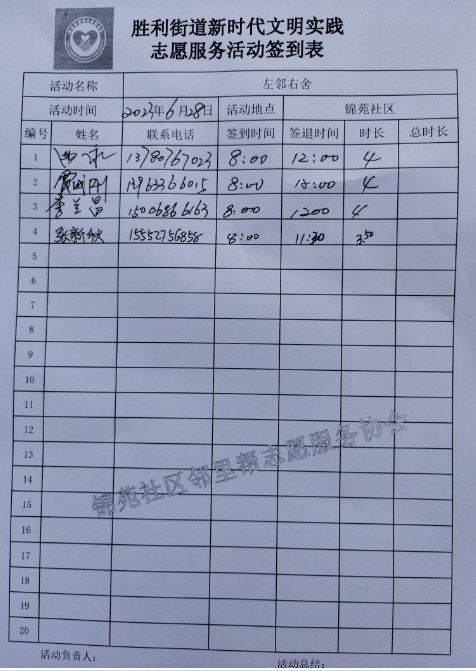 胜利街道新时代文明实践
志愿服务活动签到表
活动名称 左邻右舍
活动时间 2023年6月28日 活动地点 锦苑社区
编号 姓名 联系电话 签到时间 签退时间 时长 总时长
1 13780767023 8:00 12:00 4
2 8:00 4
3 李兰昌 15006866163 8:00 1200 4
4 张新秋 15552756858 8:00 11:30 3.50
5
6
7
8
9
10
11
12
13
14
15
16
17
18
19
20
锦苑社区邻里帮志愿服务协会
活动负责人： 活动总结：